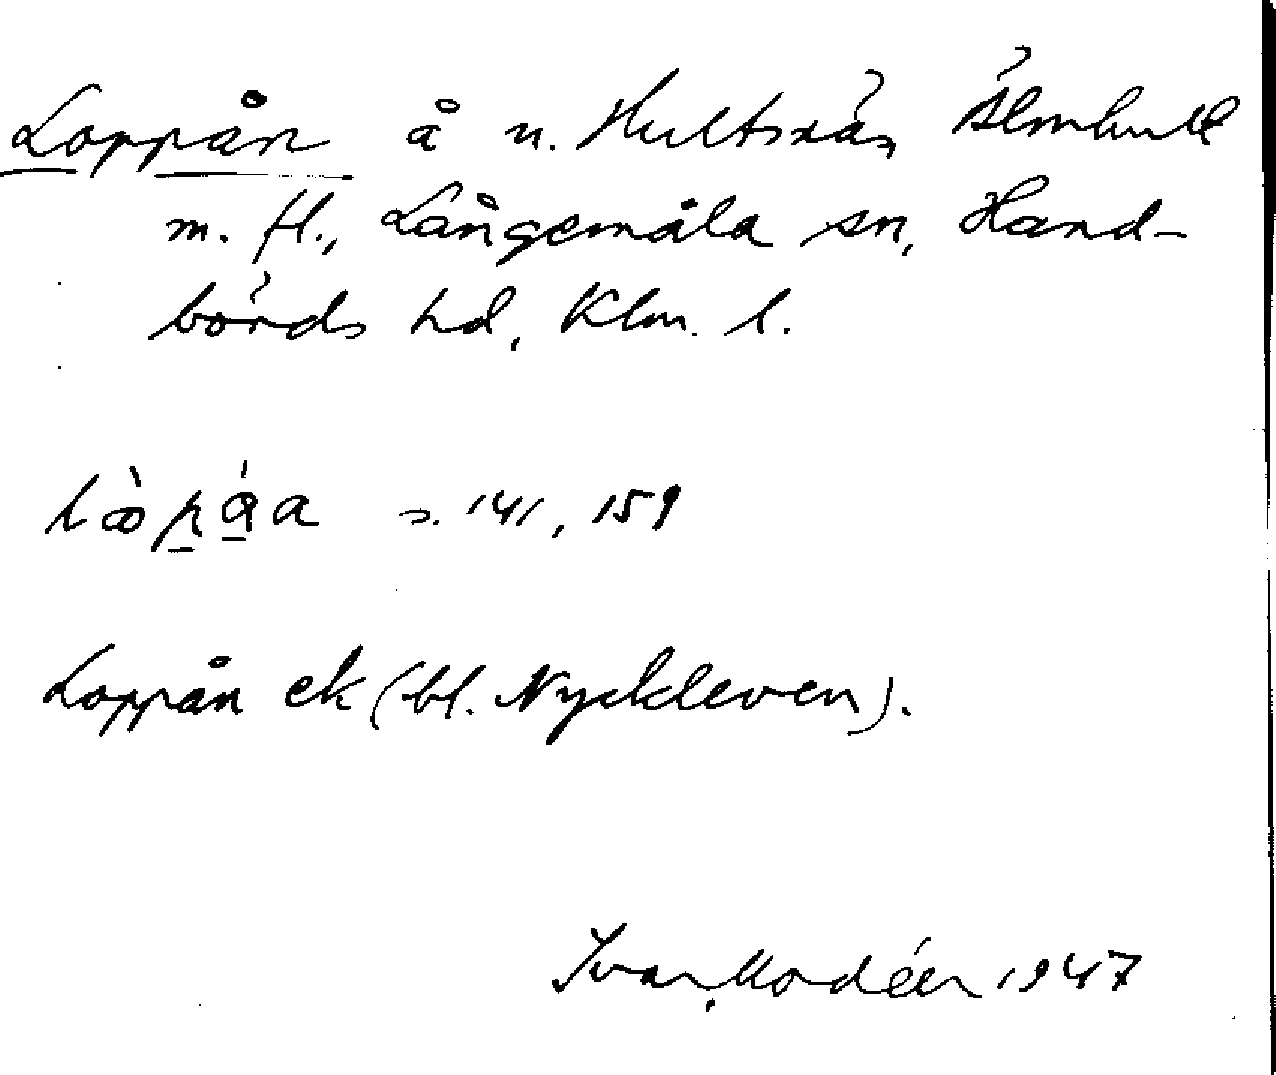 Loppån å n. Hultsnäs, Älmhult
m. fl., Långemåla sn, Hand-
börds hd, Klm. l.
s. 141, 159
Loppån ek (bl. Nyckleven).
Ivar Modéer 1947